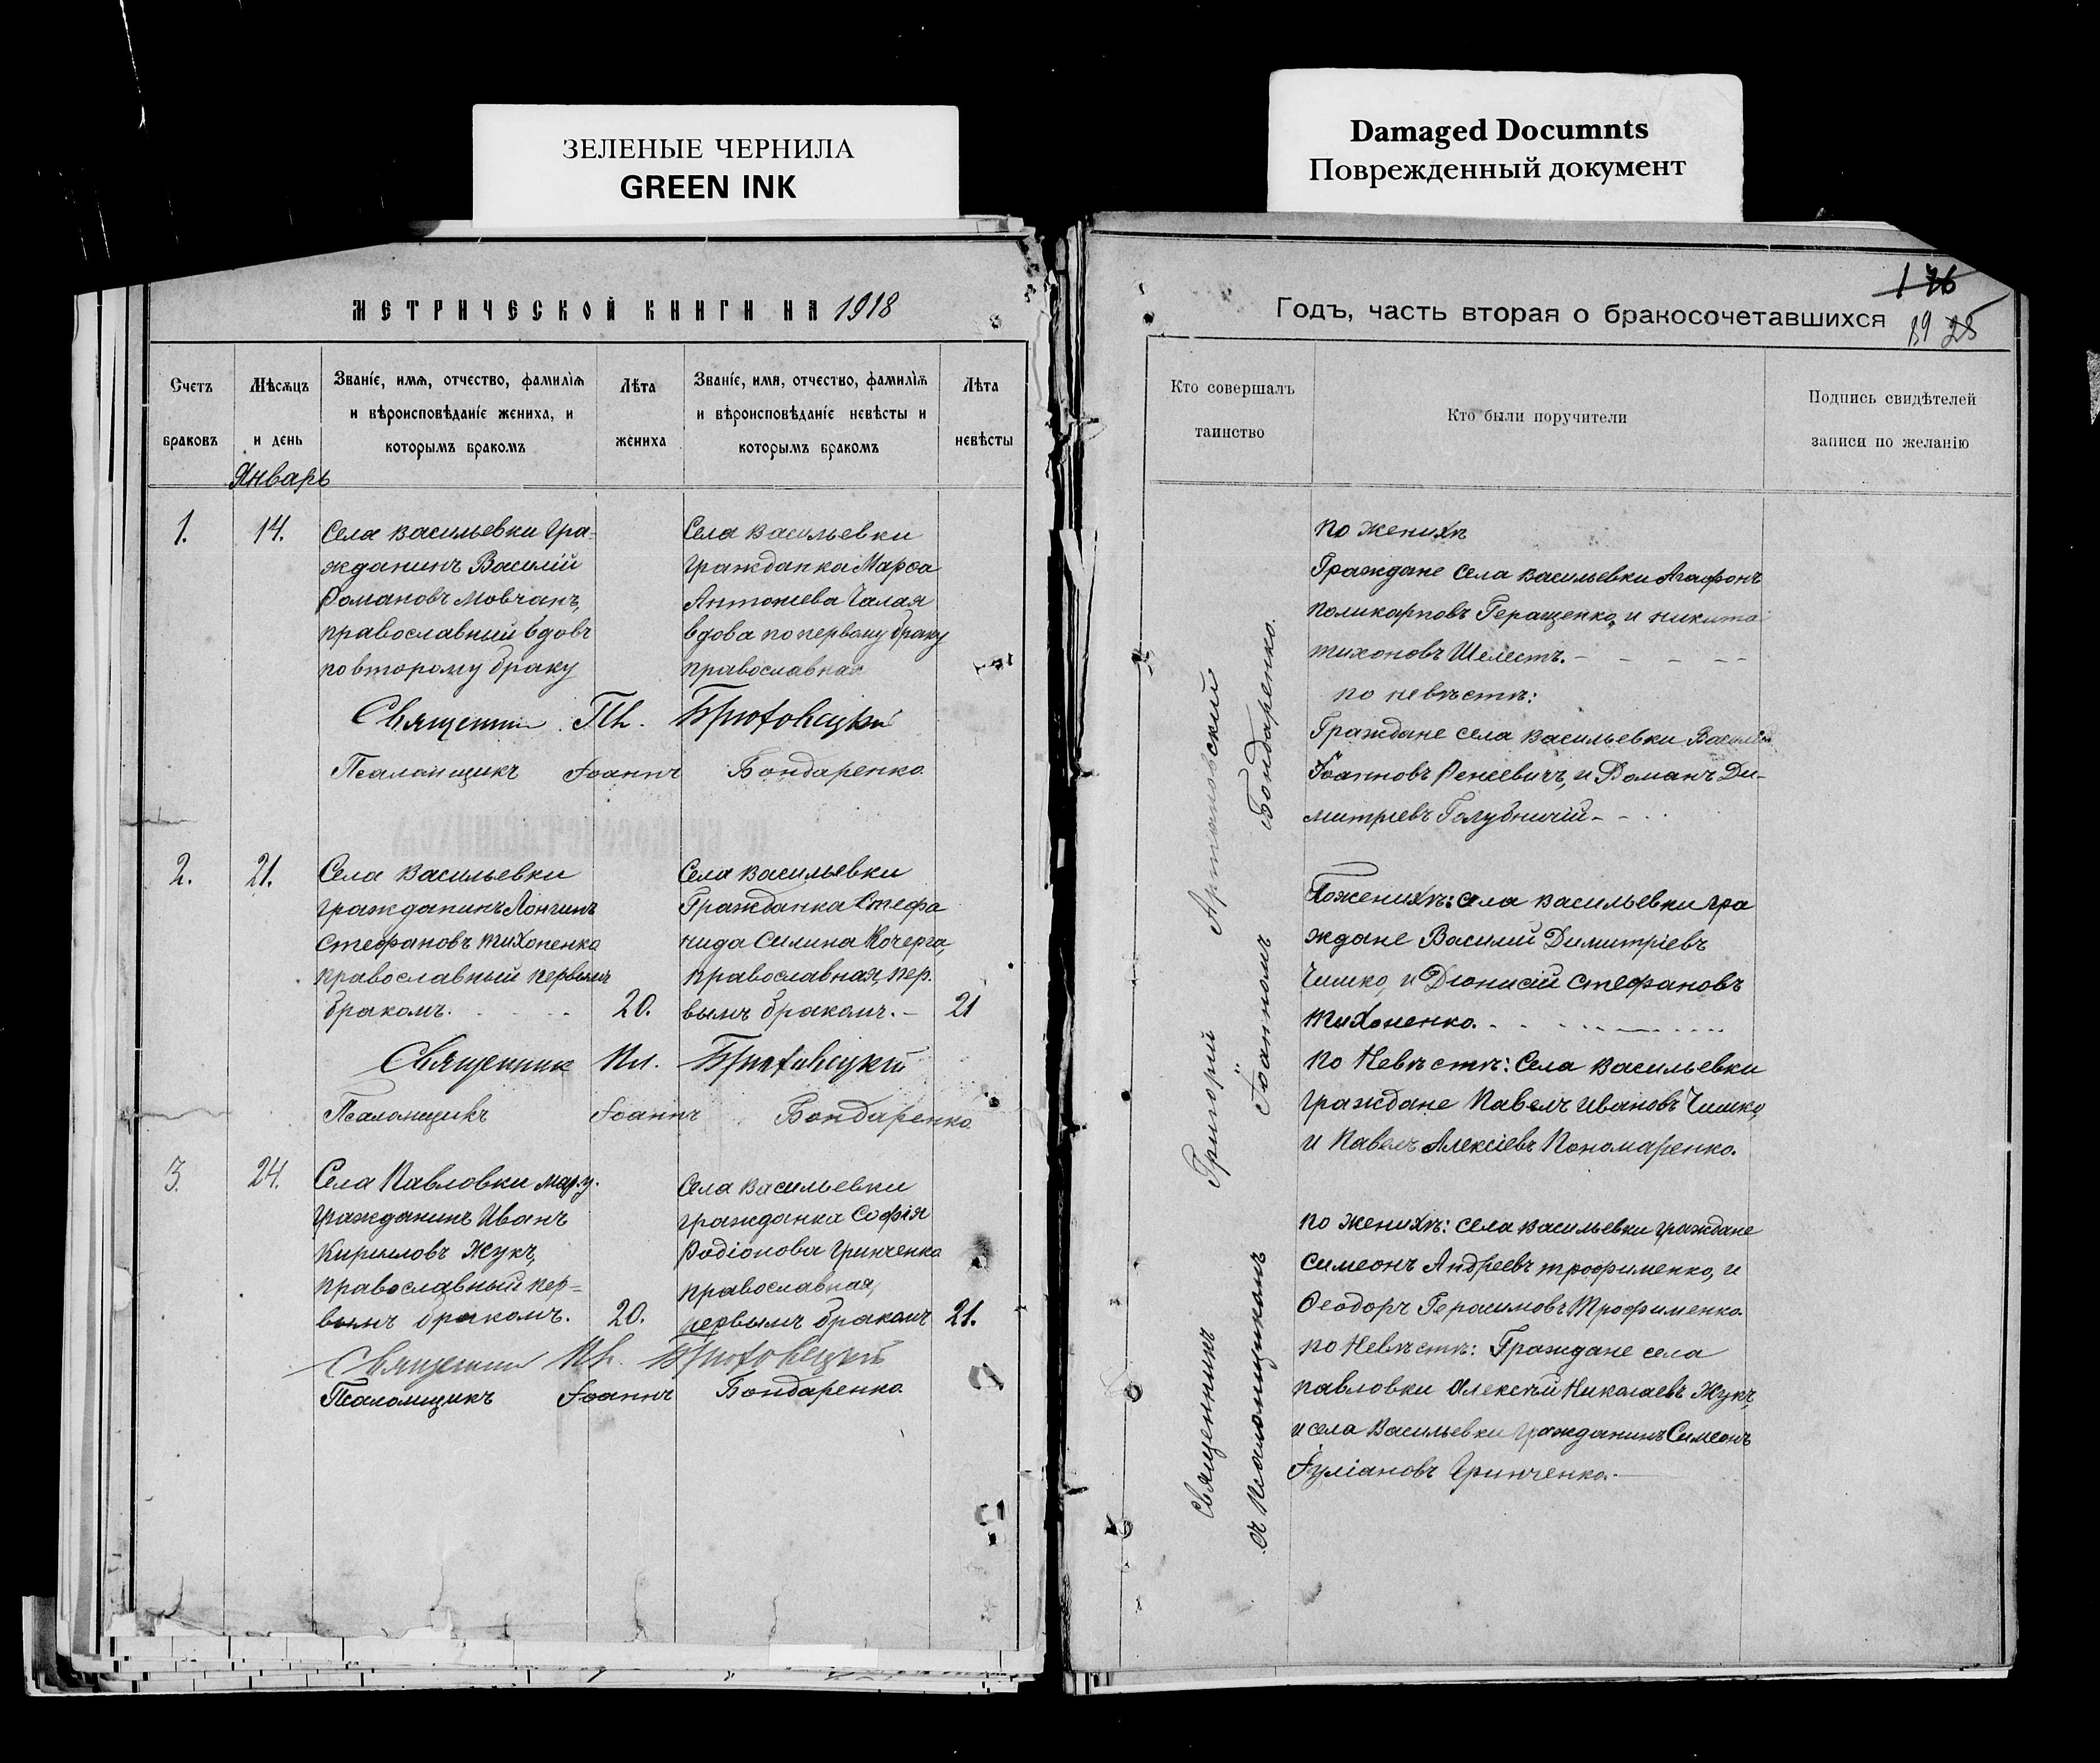 ЗЕЛЕНЫЕ ЧЕРНИЛА
GREEN INK
Damaged Documnts
Поврежденный документ
МЕТРИЧЕСКОЙ КНИГИ НА 1918
Счетъ браковъ
Мѣсяцъ и день
Званіе, имя, отчество, фамилія и вѣроисповѣданіе жениха, и которымъ бракомъ
Лѣта жениха
Званіе, имя, отчество, фамилія и вѣроисповѣданіе невѣсты и которымъ бракомъ
Лѣта невѣсты
Январь
1.
14.
Села Васильевки гра-
жданинъ Василій
Романовъ Мовчанъ,
православный вдовъ
по второму браку
Села Васильевки
гражданка Марѳа
Антоніева Чалая
вдова по первому браку
православная
Священник Пл. Брютовецкій
Псаломщикъ Іоаннъ Бондаренко
2.
21.
Села Васильевки
гражданинъ Лонгинъ
Стефановъ Тихоненко
православный первымъ
бракомъ.
20.
Села Васильевки
Гражданка Стефа
нида Силина Кочерга,
православная, пер.
вымъ бракомъ. –
21
Священник Пл.
Псаломщикъ Іоаннъ Бондаренко
3.
24.
Села Павловки
гражданинъ Иванъ
Кириловъ Жукъ,
православный пер=
вымъ бракомъ.
20.
Села Васильевки
гражданка Софія
Родіонова Гринченко
православная,
первымъ бракомъ
21.
Священник Пл.
Псаломщикъ Іоаннъ Бондаренко
176
Годъ, часть вторая о бракосочетавшихся
Кто совершалъ таинство
Кто были поручители
Подпись свидѣтелей записи по желанію
Священникъ Григорий Артановский
съ Псаломщикомъ Іоанномъ Бондаренко.
по женихѣ
Граждане села Васильевки Агафонъ
Поликарповъ Геращенко, и Никита
Тихоновъ Шелестъ. –
по невѣстѣ:
Граждане села Васильевки Василій
Іоанновъ и Романъ Ди-
митріевъ Голубничій –
По женихѣ: села Васильевки гра
ждане Василий Димитріевъ
Чишко, и Діонисій Стефановъ
Тихоненко.
по Невѣстѣ: Села Васильевки
граждане Павелъ Ивановъ Чишко,
и Павелъ Алексіевъ Пономаренко.
по женихѣ: села Васильевки граждане
Симеонъ Андреевъ Трофименко, и
Ѳеодоръ Герасимовъ Трофименко.
по Невѣстѣ: Граждане села
Павловки Алексѣй Николаевъ Жукъ,
и села Васильевки гражданинъ Симеонъ
Іуліановъ Гринченко. –